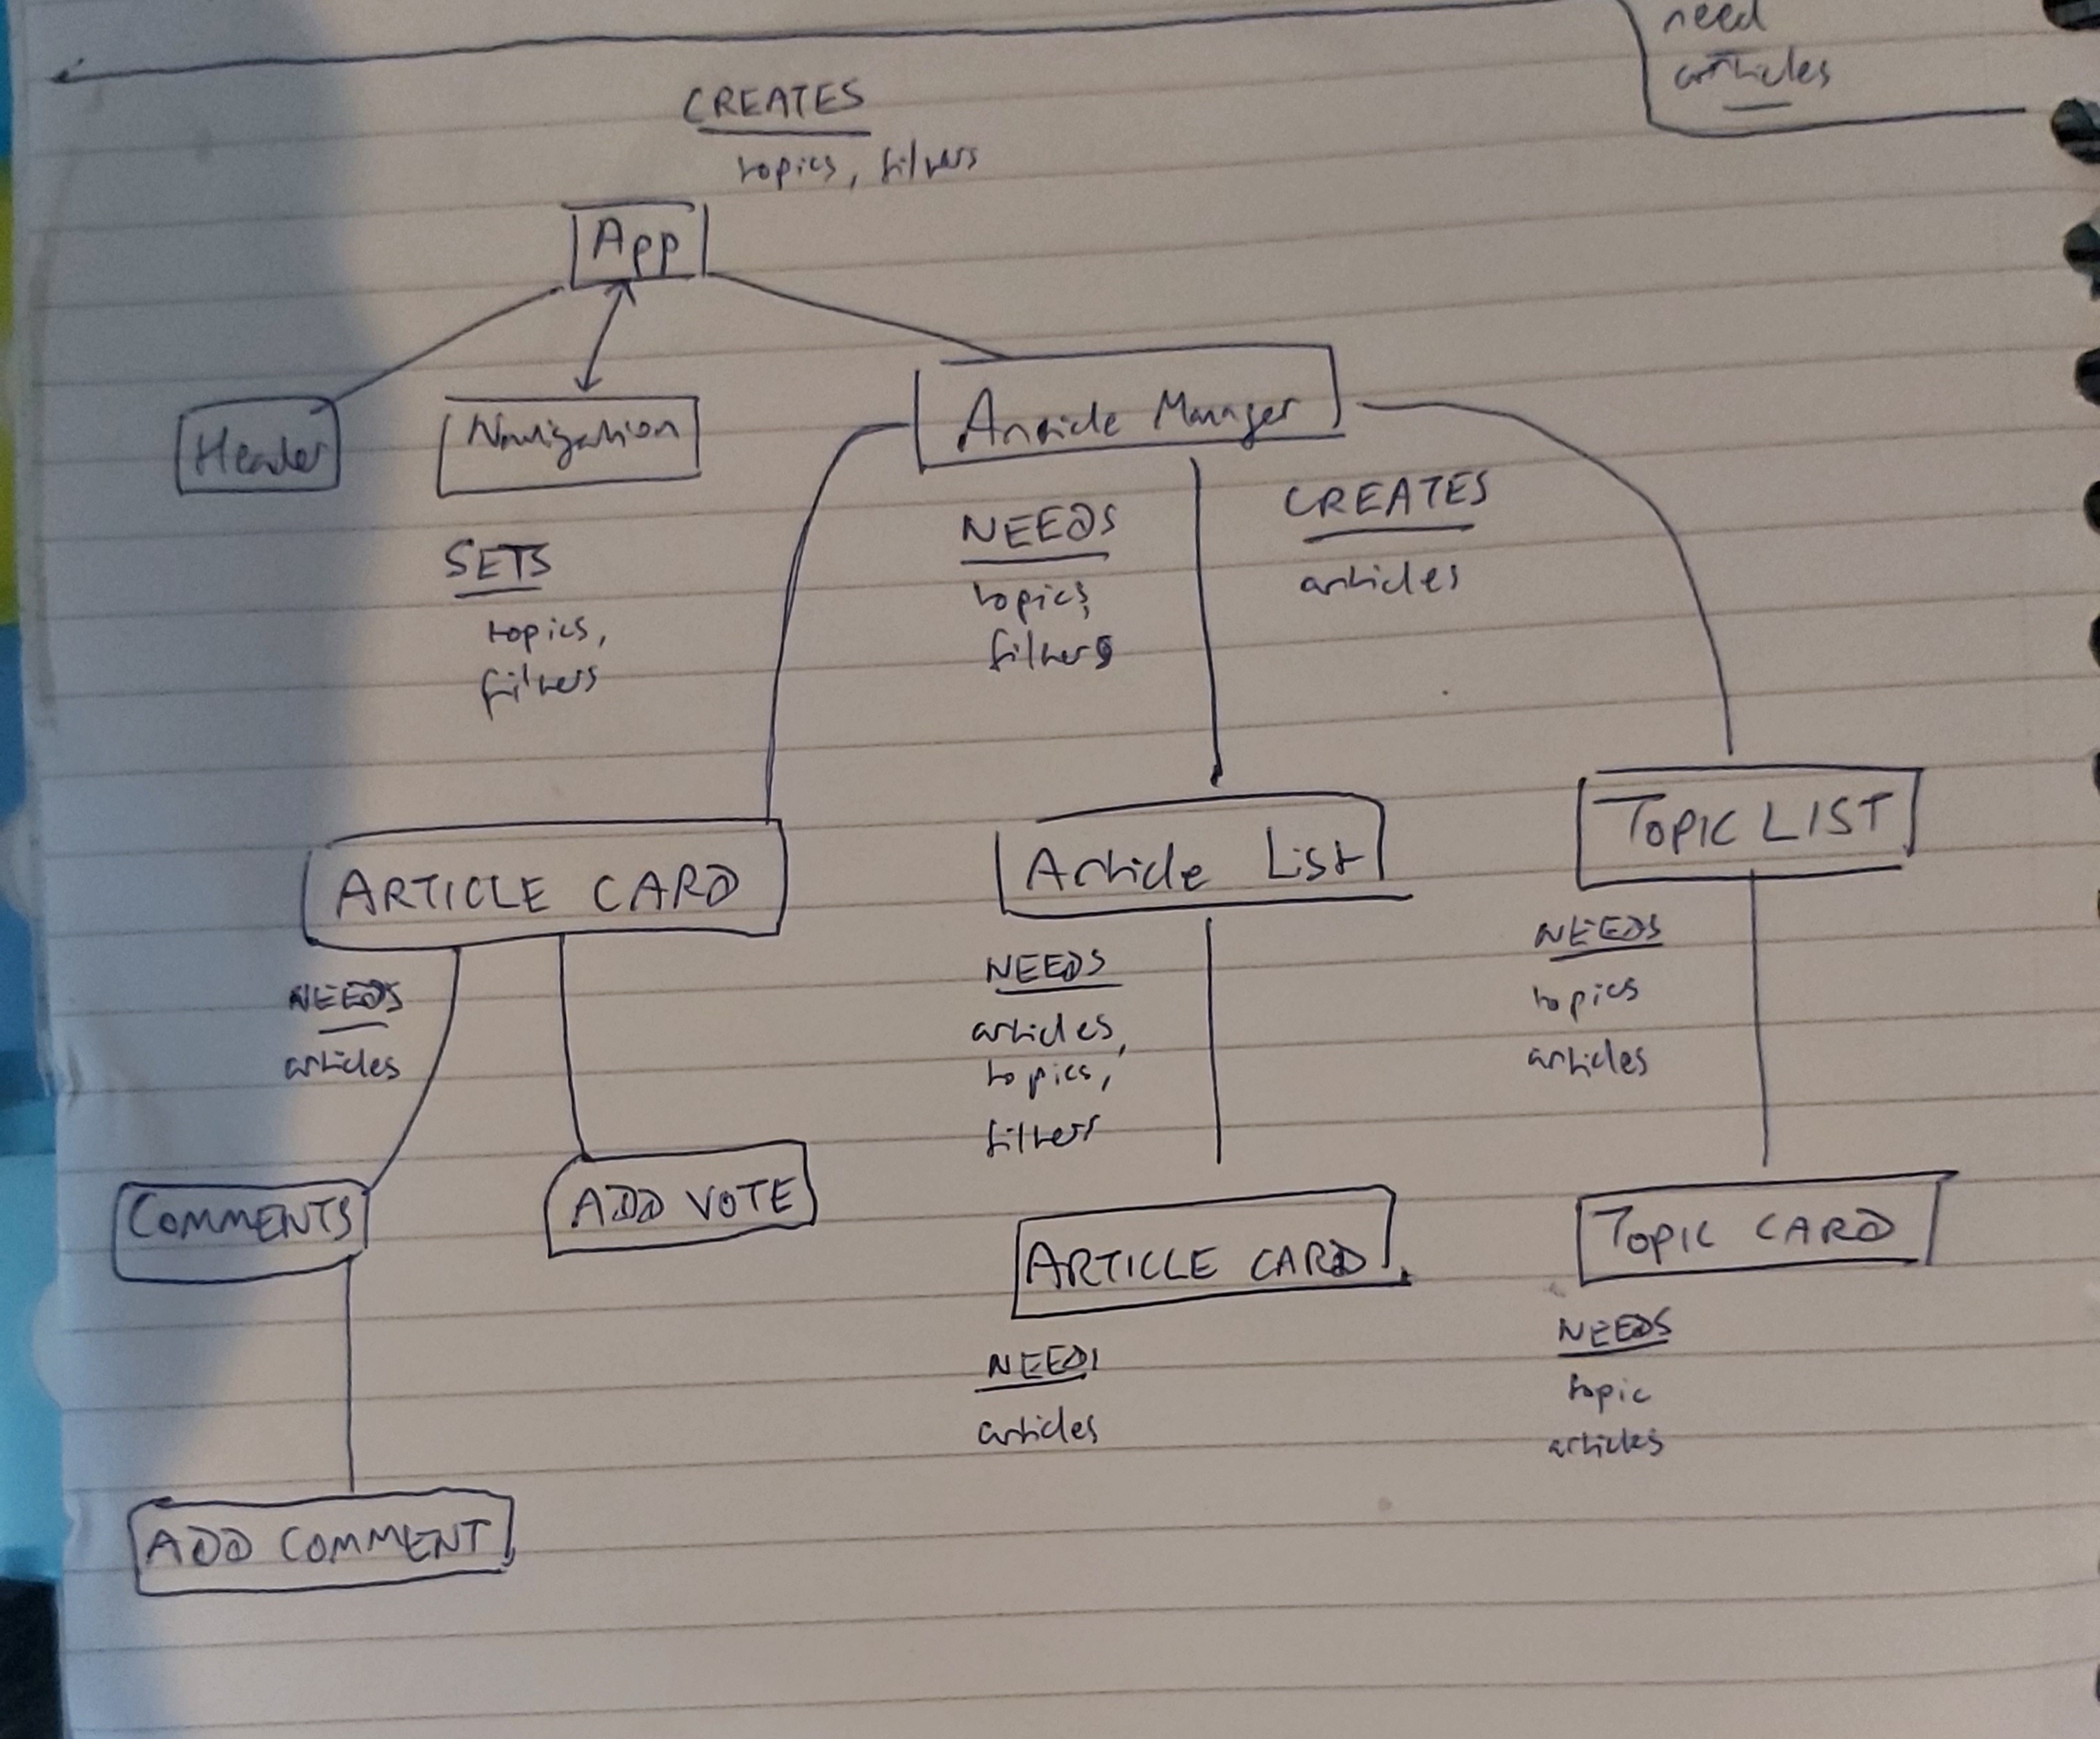 need
articles
CREATES
topics, filters
App
Header
Navigation
Article Manager
SETS
topics,
filters
NEEDS
topics,
filters
CREATES
articles
ARTICLE CARD
Article List
TOPIC LIST
NEEDS
articles
NEEDS
articles,
topics,
filters
NEEDS
topics
articles
COMMENTS
ADD VOTE
ARTICLE CARD
TOPIC CARD
NEEDS
articles
NEEDS
topic
articles
ADD COMMENT